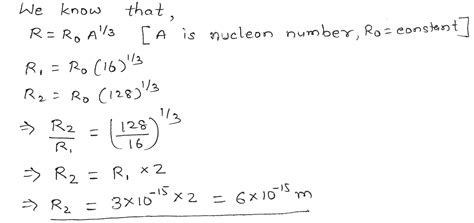 We know that,
R = R₀ A^1/3 [A is nucleon number, R₀ = constant]
R₁ = R₀ (16)^1/3
R₂ = R₀ (128)^1/3
⇒ R₂/R₁ = (128/16)^1/3
⇒ R₂ = R₁ × 2
⇒ R₂ = 3×10^-15 × 2 = 6×10^-15 m